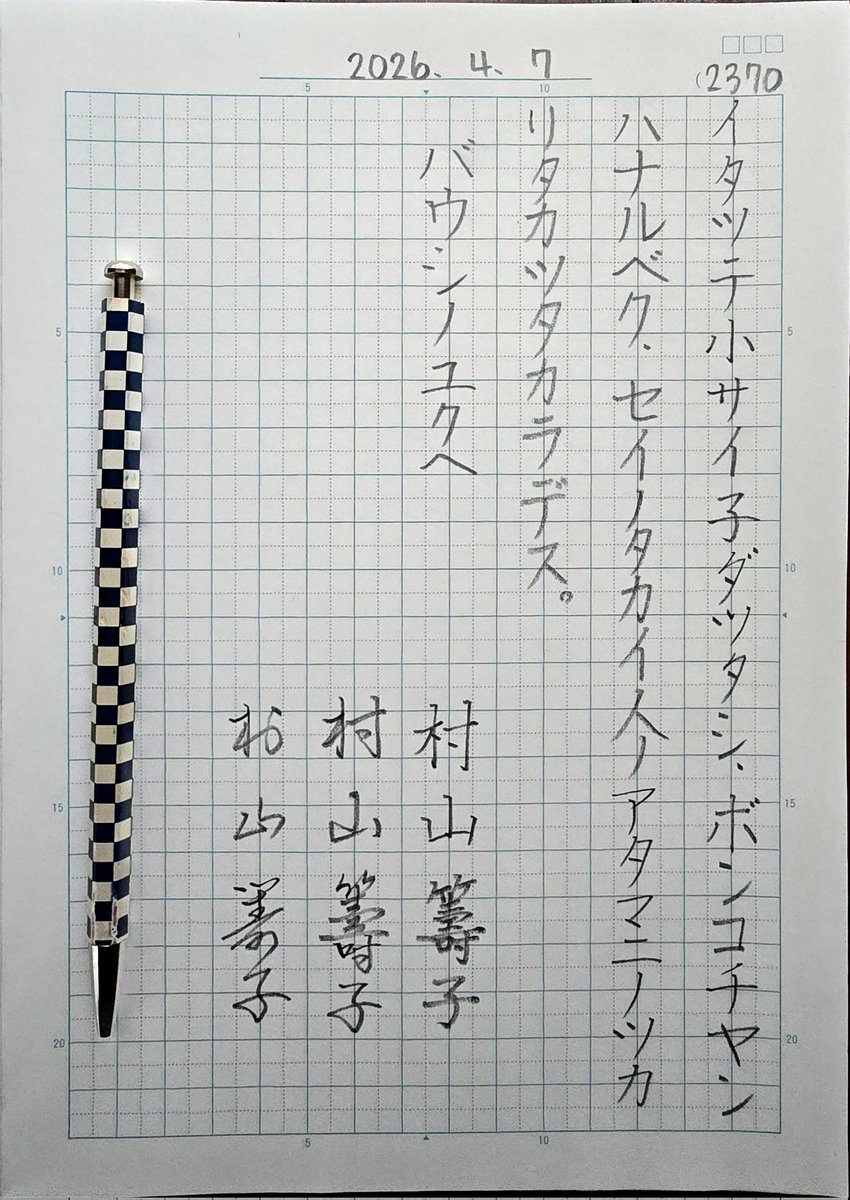 2026. 4. 7
(2370
イタツテ小サイ子ダツタシ、ボンコチヤン
ハナルベク、セイノタカイ人ノアタマニノツカ
リタカツタカラデス。
バウシノユクヘ
村山籌子
村山籌子
村山籌子
5
10
5
10
15
20
5
10
15
20
5
10